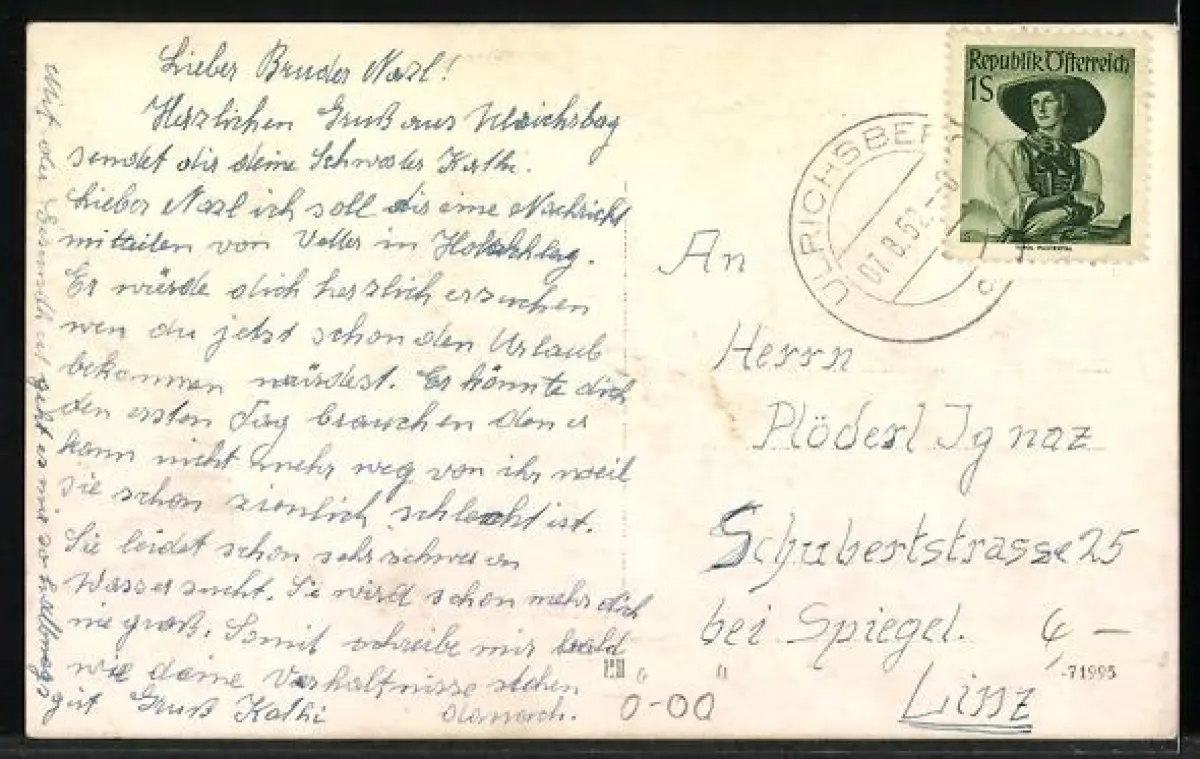 Lieber Bruder Nazl!
Herzlichen Gruß aus Ulrichsbag
sendet dir deine Schwester Kathi.
Lieber Nazl ich soll dir eine Nachricht
mitteilen von Vetter in
Er würde dich herzlich ersuchen
wen du jetzt schon den Urlaub
bekommen würdest. Er könnte dich
den ersten Tag brauchen den er
kann nicht mehr weg von ihr weil
sie schon ziemlich schlecht ist.
Sie leidet schon sehr schwer an
Wassersucht. Sie wird schon mehr dich
Somit schreibe mir bald
wie deine Verhältnisse stehen
gut Gruß Kathi danach.
Mit der Gesundheit geht es mir so halbwegs
Republik Österreich
1S
ULRICHSBERG
07.8.52.-8
An
Herrn
Plöderl Ignaz
Schubertstrasse 25
bei Spiegel.
Linz
-71995
0-00